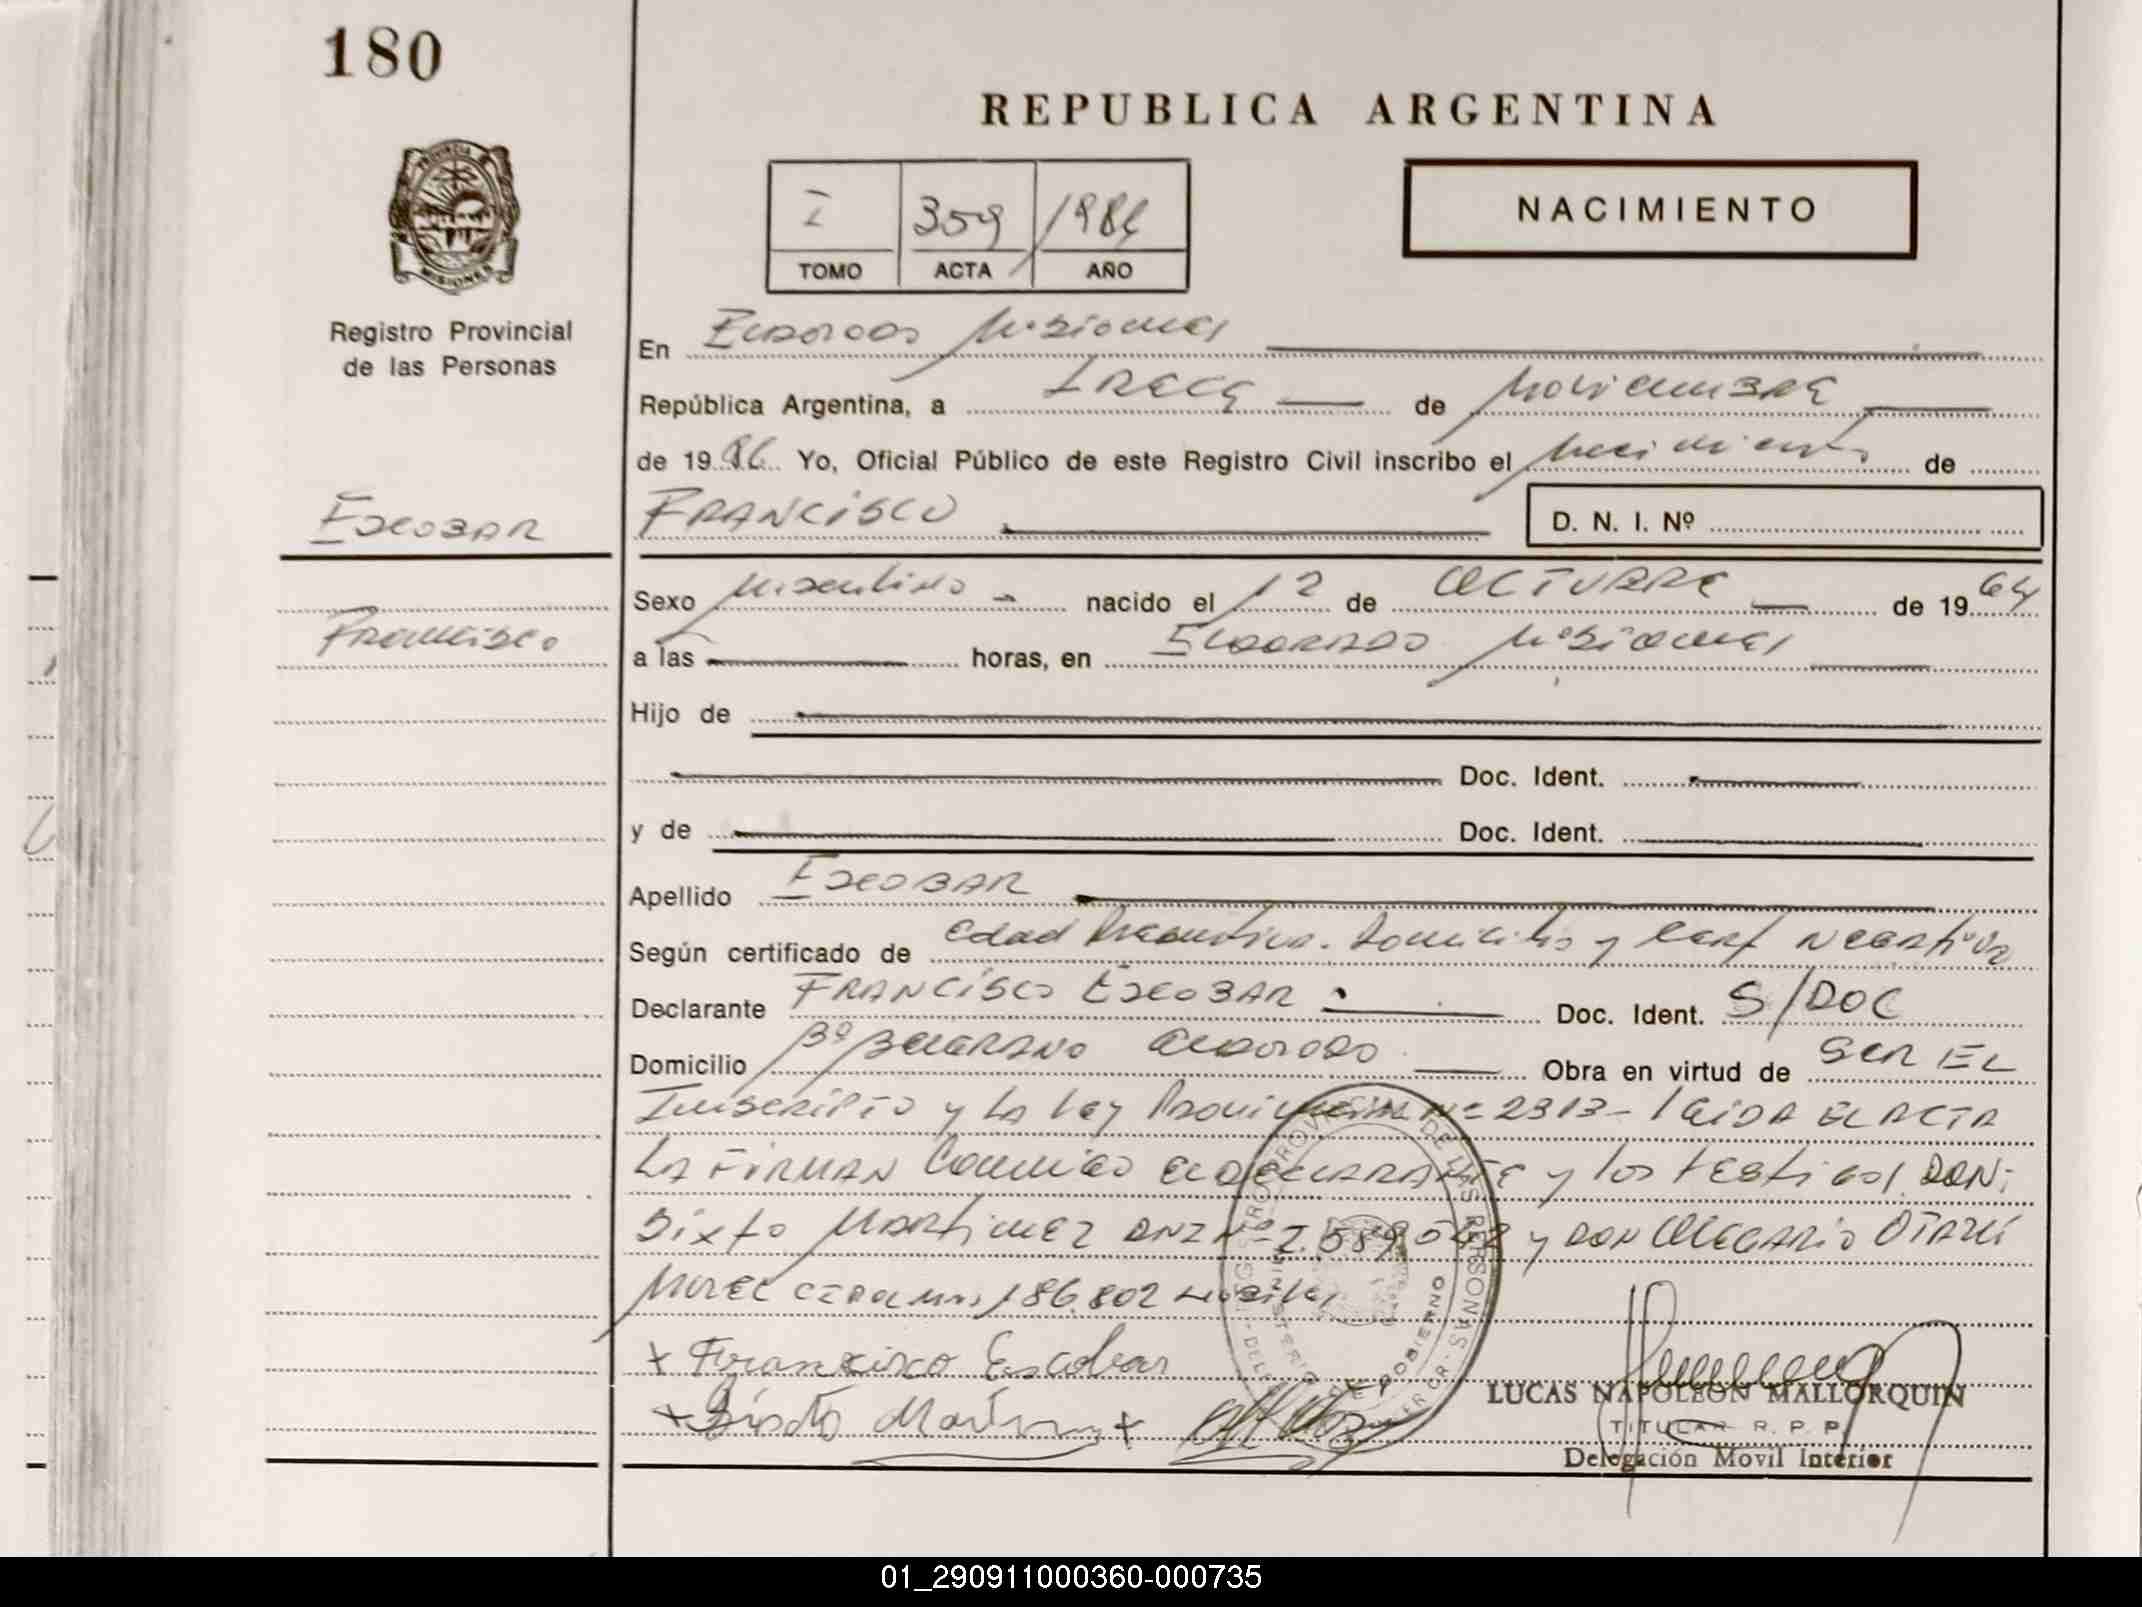 180
REPUBLICA ARGENTINA
PROVINCIA
MISIONES
Registro Provincial
de las Personas
I 359 1986
TOMO ACTA AÑO
NACIMIENTO
En Eldorado Misiones
República Argentina, a trece de Noviembre
de 1986 Yo, Oficial Público de este Registro Civil inscribo el Nacimiento de
Escobar
FRANCISCO
D. N. I. Nº
Francisco
Sexo Masculino - nacido el 12 de OCTUBRE de 1964
a las horas, en Eldorado Misiones
Hijo de
Doc. Ident.
y de Doc. Ident.
Apellido ESCOBAR
Según certificado de edad Presuntiva. Domicilio y Cert Negativo
Declarante FRANCISCO ESCOBAR Doc. Ident. S/DOC
Domicilio Bº BELGRANO Eldorado Obra en virtud de SER EL
Inscripto y La Ley Provincial Nº 2313 - Leida EL ACTA
LA FIRMAN Conmigo EL DECLARANTE y los testigos DON:
Sixto Martinez DNI Nº 7.589.542 y DON OLEGARIO
MOREL 186.802
x Francisco Escobar
x Sixto Martinez x
LUCAS NAPOLEON MALLORQUIN
TITULAR R. P. P.
Delegación Movil Interior
01_290911000360-000735